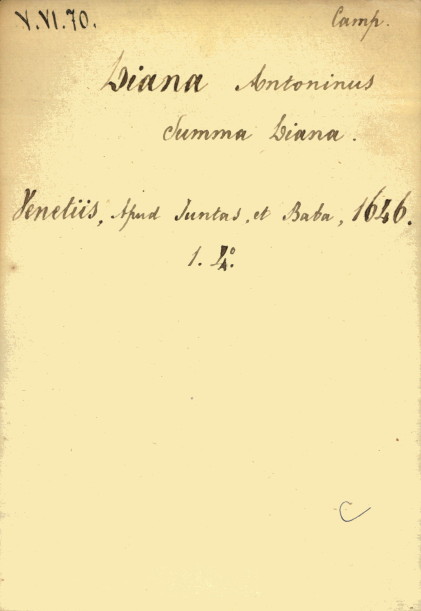 V.VI.70. Camp.
Diana Antoninus
Summa Diana.
Venetiis, Apud Iuntas, et Baba, 1646.
1. 4.º
C